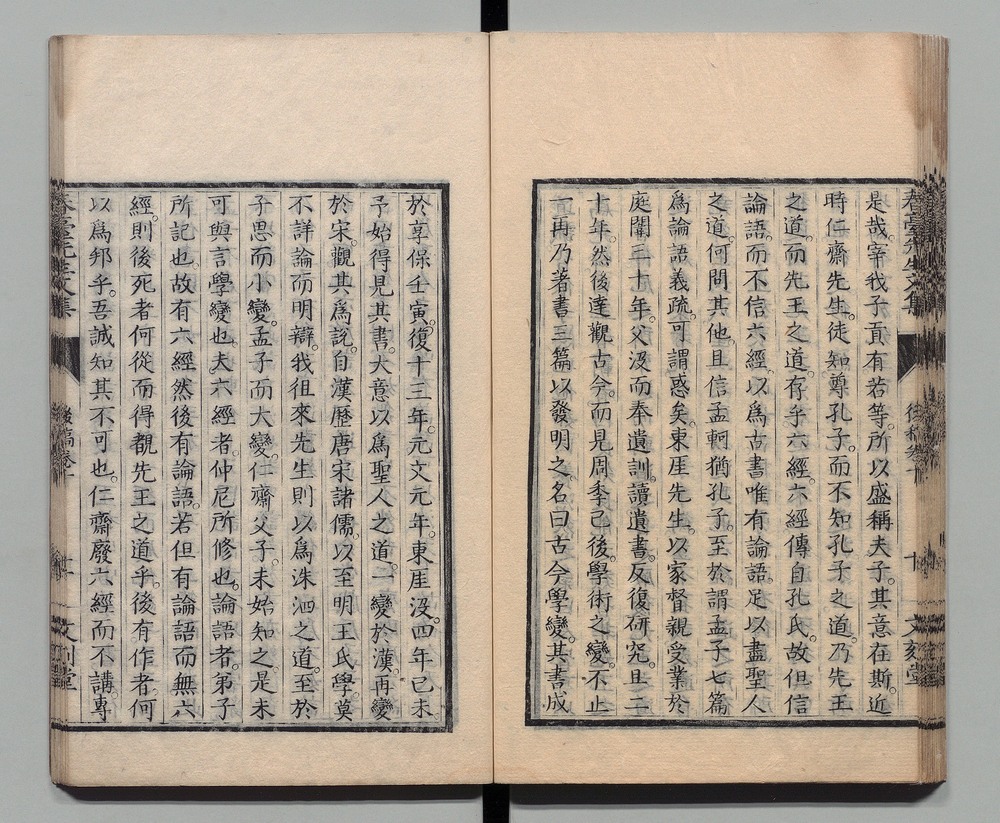 是哉。宰我子貢有若等。所以盛稱夫子。其意在斯。近
時仁齋先生。徒知尊孔子。而不知孔子之道。乃先王
之道。而先王之道。存乎六經。六經傳自孔氏。故但信
論語。而不信六經。以爲古書唯有論語。足以盡聖人
之道。何問其他。且信孟軻猶孔子。至於謂孟子七篇
爲論語義疏。可謂惑矣。東涯先生。以家督親受業於
庭闈三十年。父沒而奉遺訓。讀遺書。反復研究。且二
十年。然後達觀古今。而見周季已後。學術之變。不止
一再。乃著書三篇以發明之。名曰古今學變。其書成
於享保壬寅。復十三年。元文元年。東涯沒。四年己未
予始得見其書。大意以爲聖人之道。一變於漢。再變
於宋。觀其爲說。自漢歷唐宋諸儒。以至明王氏學。莫
不詳論而明辯。我徂來先生則以爲洙泗之道。至於
子思而小變。孟子而大變。仁齋父子。未始知之。是未
可與言學變也。夫六經者。仲尼所修也。論語者。弟子
所記也。故有六經然後有論語。若但有論語而無六
經。則後死者何從而得覩先王之道乎。後有作者。何
以爲邦乎。吾誠知其不可也。仁齋廢六經而不講。專
春臺先生文集
後稿卷十
十一
文刻堂